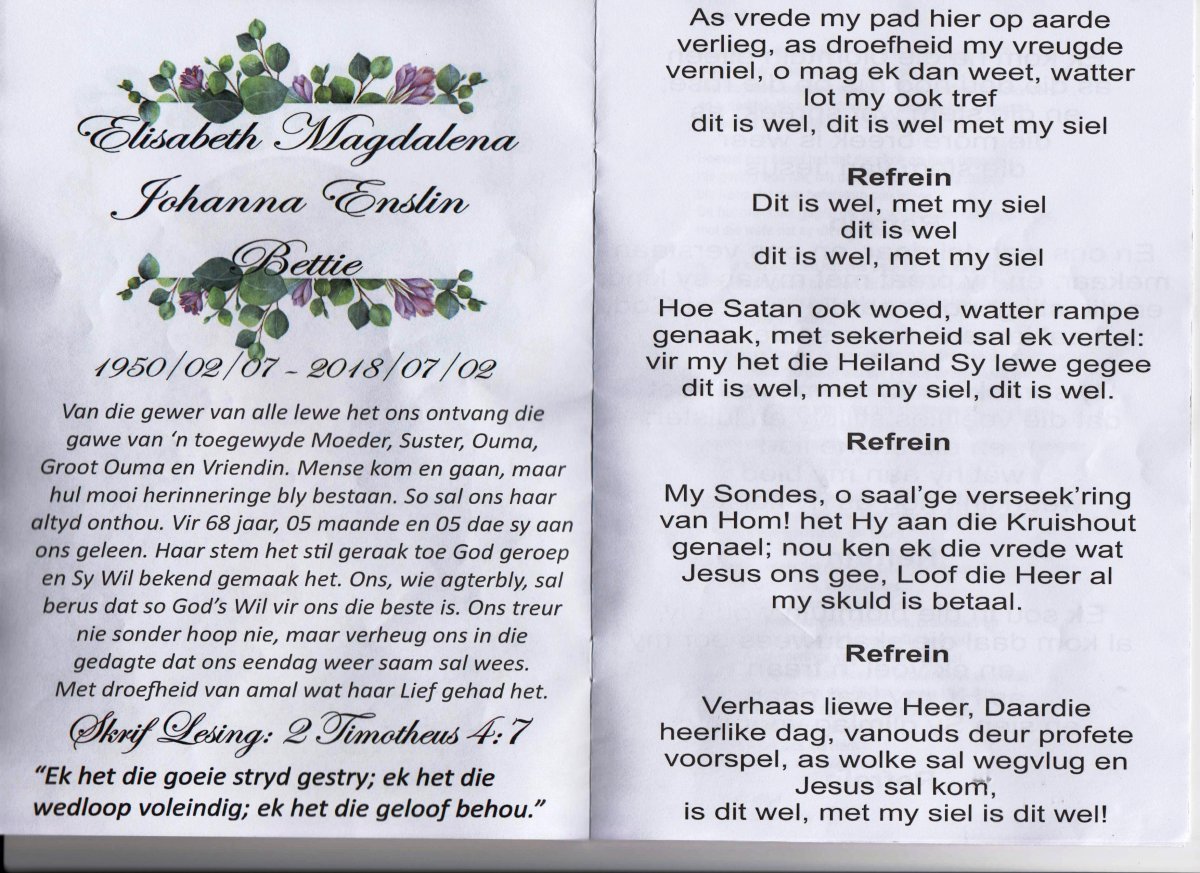 Elisabeth Magdalena
Johanna Enslin
Bettie
1950/02/07 - 2018/07/02
Van die gewer van alle lewe het ons ontvang die
gawe van ‘n toegewyde Moeder, Suster, Ouma,
Groot Ouma en Vriendin. Mense kom en gaan, maar
hul mooi herinneringe bly bestaan. So sal ons haar
altyd onthou. Vir 68 jaar, 05 maande en 05 dae sy aan
ons geleen. Haar stem het stil geraak toe God geroep
en Sy Wil bekend gemaak het. Ons, wie agterbly, sal
berus dat so God’s Wil vir ons die beste is. Ons treur
nie sonder hoop nie, maar verheug ons in die
gedagte dat ons eendag weer saam sal wees.
Met droefheid van amal wat haar Lief gehad het.
Skrif Lesing: 2 Timotheus 4:7
“Ek het die goeie stryd gestry; ek het die
wedloop voleindig; ek het die geloof behou.”
As vrede my pad hier op aarde
verlieg, as droefheid my vreugde
verniel, o mag ek dan weet, watter
lot my ook tref
dit is wel, dit is wel met my siel
Refrein
Dit is wel, met my siel
dit is wel
dit is wel, met my siel
Hoe Satan ook woed, watter rampe
genaak, met sekerheid sal ek vertel:
vir my het die Heiland Sy lewe gegee
dit is wel, met my siel, dit is wel.
Refrein
My Sondes, o saal’ge verseek’ring
van Hom! het Hy aan die Kruishout
genael; nou ken ek die vrede wat
Jesus ons gee, Loof die Heer al
my skuld is betaal.
Refrein
Verhaas liewe Heer, Daardie
heerlike dag, vanouds deur profete
voorspel, as wolke sal wegvlug en
Jesus sal kom,
is dit wel, met my siel is dit wel!